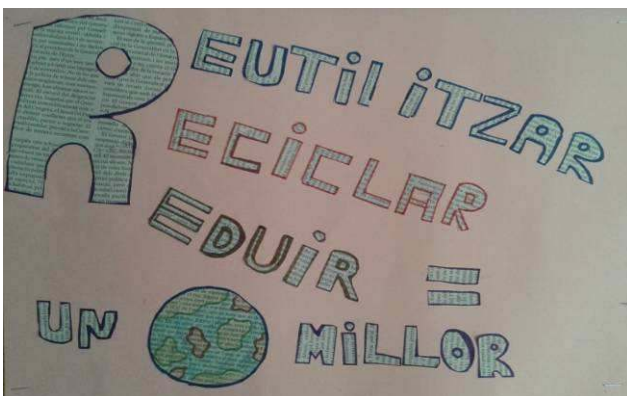 REUTILITZAR
ECICLAR
EDUIR =
UN MILLOR